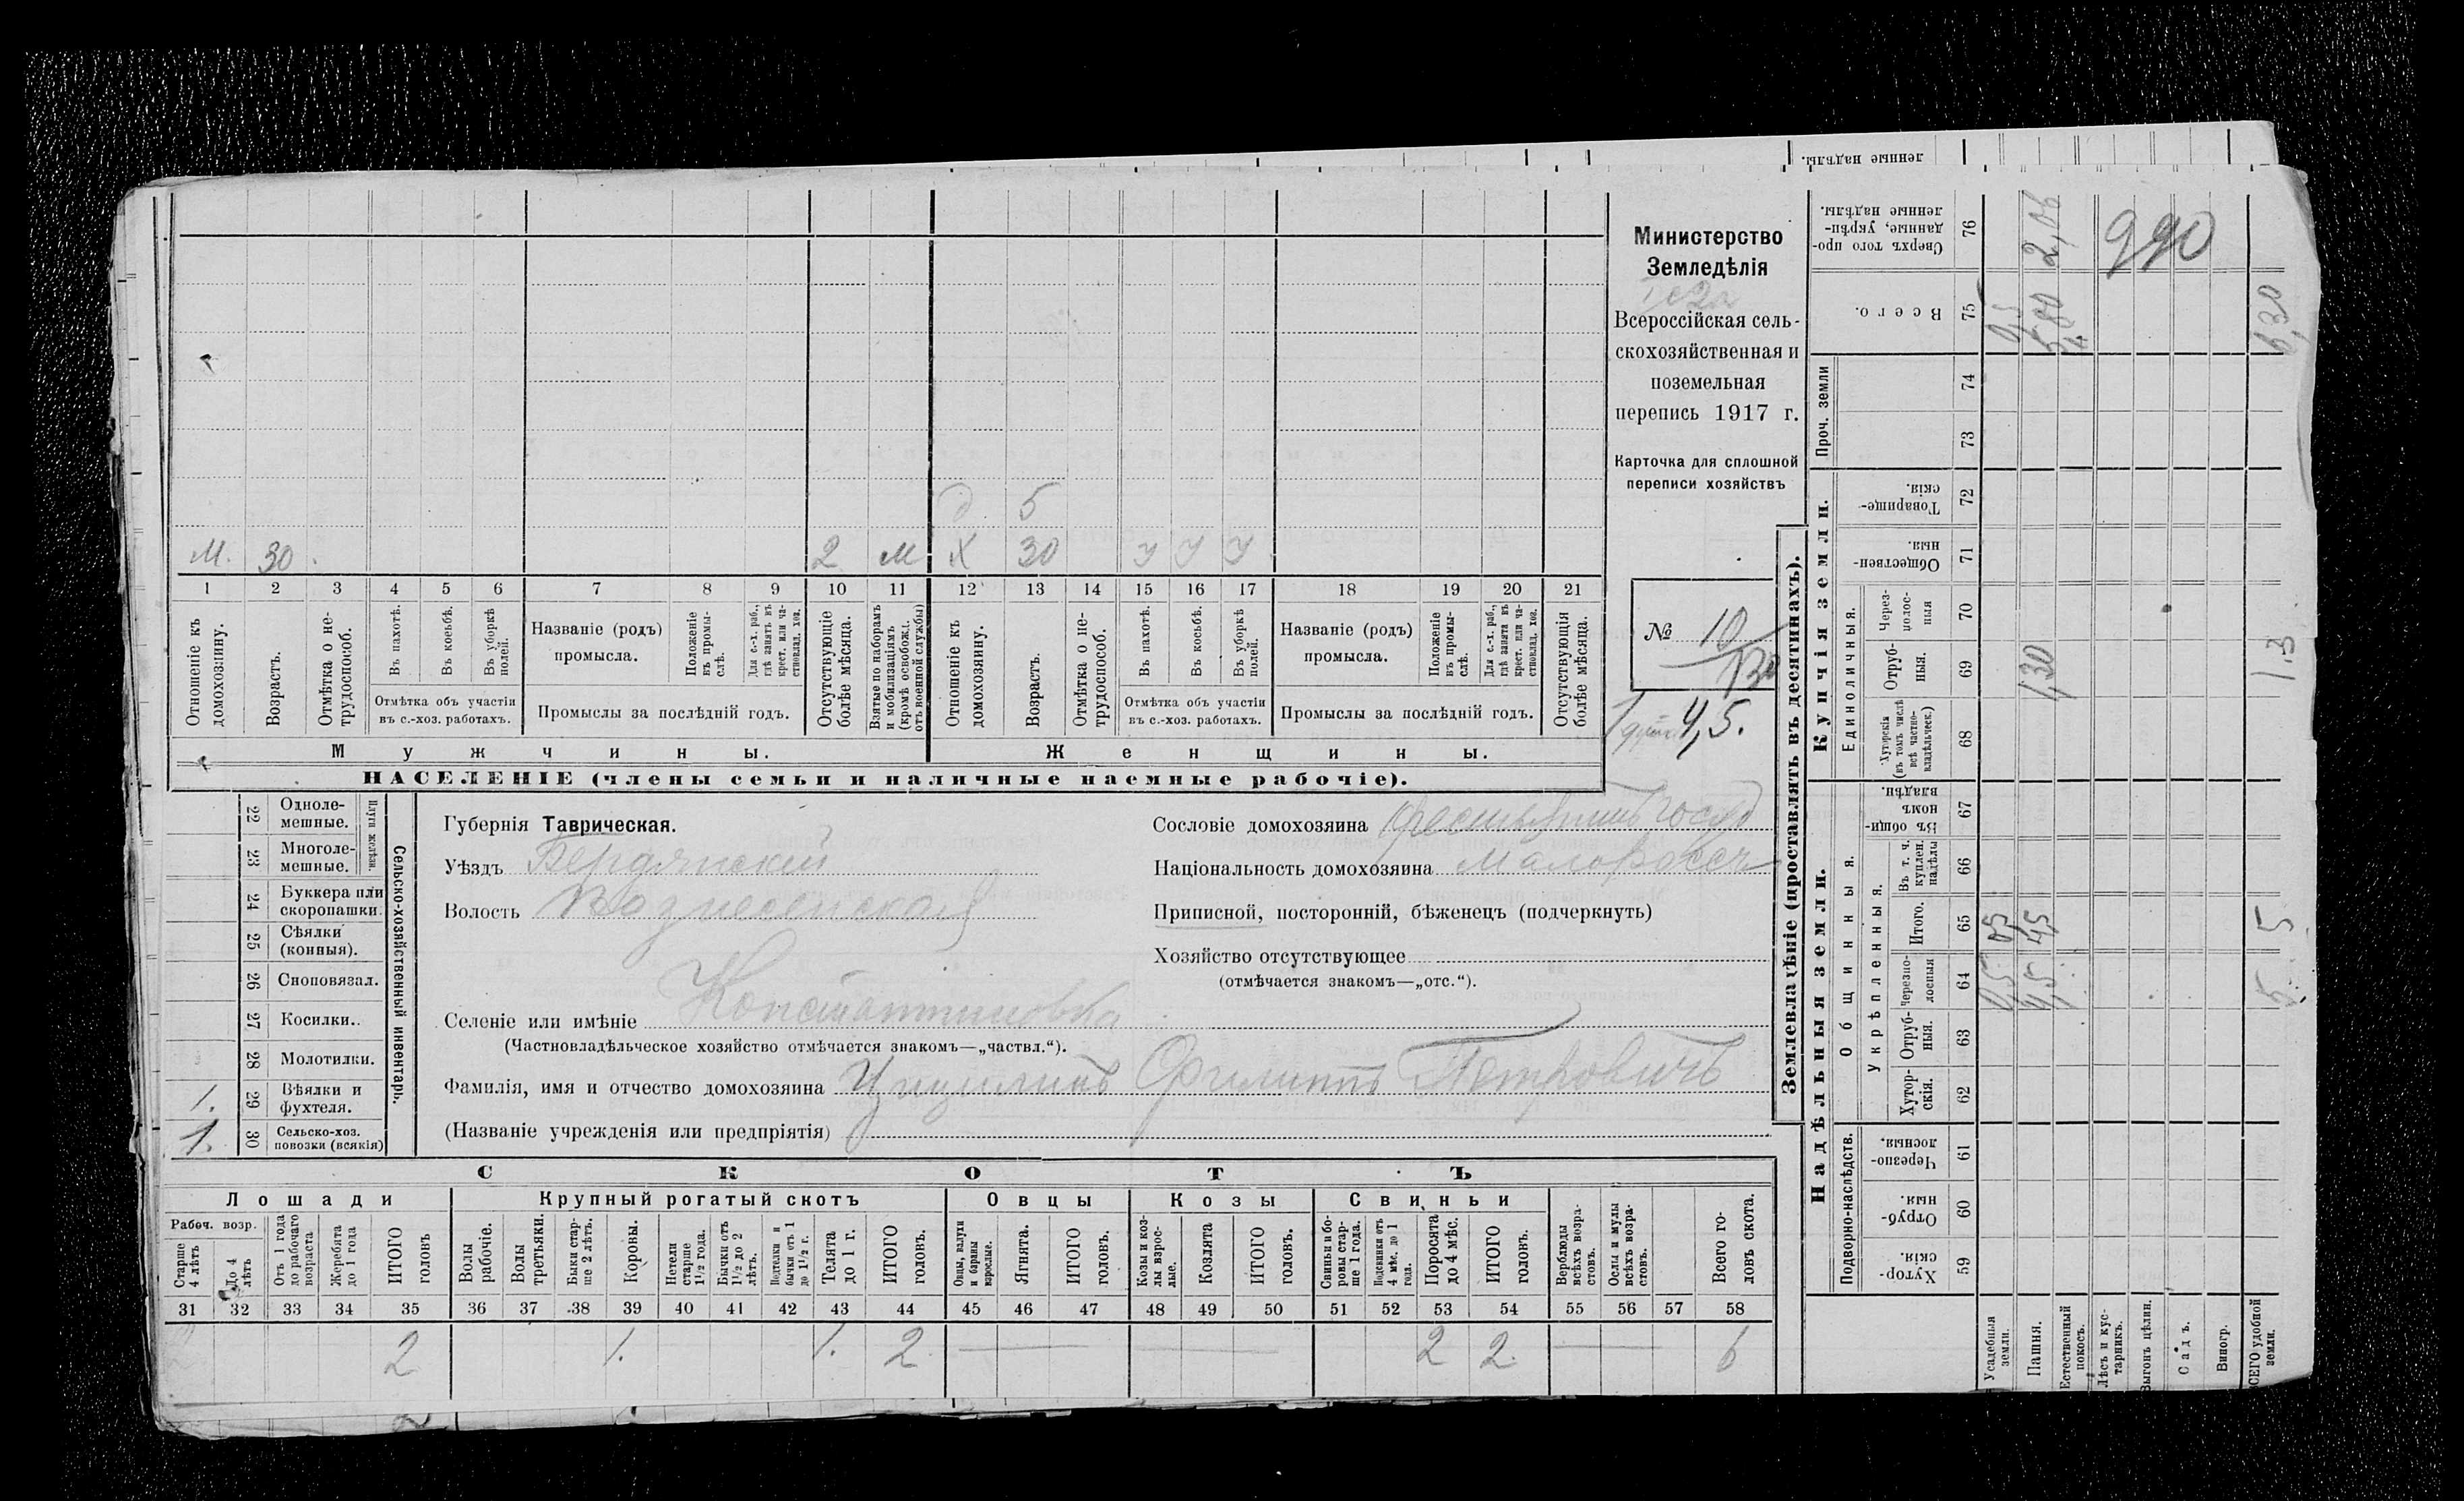 ленные надѣлы.
М. 30. 2 м Х 30 У У У
5
1 2 3 4 5 6 7 8 9 10 11 12 13 14 15 16 17 18 19 20 21
Отношеніе къ домохозяину.
Возрастъ.
Отмѣтка о не-трудоспособ.
Въ пахотѣ.
Въ косьбѣ.
Въ уборкѣ полей.
Отмѣтка объ участіи
въ с.-хоз. работахъ.
Названіе (родъ)
промысла.
Положеніе въ промы-слѣ.
Для с.-х. раб., гдѣ занятъ въ крест. или ча-стновлад. хоз.
Промыслы за послѣдній годъ.
Отсутствующіе болѣе мѣсяца.
Взятые по наборамъ и мобилизаціямъ (кромѣ освобож. отъ военной службы)
Отношеніе къ домохозяину.
Возрастъ.
Отмѣтка о не-трудоспособ.
Въ пахотѣ.
Въ косьбѣ.
Въ уборкѣ полей.
Отмѣтка объ участіи
въ с.-хоз. работахъ.
Названіе (родъ)
промысла.
Положеніе въ промы-слѣ.
Для с.-х. раб., гдѣ занята въ крест. или ча-стновлад. хоз.
Промыслы за послѣдній годъ.
Отсутствующія болѣе мѣсяца.
Мужчины.
Женщины.
НАСЕЛЕНІЕ (члены семьи и наличные наемные рабочіе).
Министерство
Земледѣлія
Всероссійская сель-
скохозяйственная и
поземельная
перепись 1917 г.
Карточка для сплошной
переписи хозяйствъ
№ 10
130
4,5.
22 Одноле-мешные.
23 Многоле-мешные.
Плуги желѣзн.
24 Буккера или скоропашки.
25 Сѣялки (конныя).
26 Сноповязал.
27 Косилки.
28 Молотилки.
1. 29 Вѣялки и фухтеля.
1. 30 Сельско-хоз. повозки (всякія)
Сельско-хозяйственный инвентарь.
Губернія Таврическая.
Уѣздъ Бердянскій
Волость Вознесенская
Селеніе или имѣніе Константиновка
(Частновладѣльческое хозяйство отмѣчается знакомъ—„частвл.“).
Фамилія, имя и отчество домохозяина Филиппъ Петровичъ
(Названіе учрежденія или предпріятія)
Сословіе домохозяина
Національность домохозяина малоросс
Приписной, посторонній, бѣженецъ (подчеркнуть)
Хозяйство отсутствующее
(отмѣчается знакомъ—„отс.“).
СКОТЪ
Лошади
Крупный рогатый скотъ
Овцы
Козы
Свиньи
Рабоч. возр.
Старше 4 лѣтъ
До 4 лѣтъ
Отъ 1 года до рабочаго возраста
Жеребята до 1 года
ИТОГО головъ
Волы рабочіе.
Волы третьяки.
Быки стар-ше 2 лѣтъ.
Коровы.
Нетели старше 1½ года.
Бычки отъ 1½ до 2 лѣтъ.
Подтелки и бычки отъ 1 до 1½ г.
Телята до 1 г.
ИТОГО головъ.
Овцы, валухи и бараны взрослые.
Ягнята.
ИТОГО головъ.
Козы и коз-лы взрос-лые.
Козлята
ИТОГО головъ.
Свиньи и бо-ровы стар-ше 1 года.
Подсвинки отъ 4 мѣс. до 1 года.
Поросята до 4 мѣс.
ИТОГО головъ.
Верблюды всѣхъ возра-стовъ.
Ослы и мулы всѣхъ возра-стовъ.
Всего го-ловъ скота.
31 32 33 34 35 36 37 38 39 40 41 42 43 44 45 46 47 48 49 50 51 52 53 54 55 56 57 58
2 1. 1. 2 2 2. 6
Землевладѣніе (проставлять въ десятинахъ).
Надѣльныя земли.
Купчія земли.
Проч. земли
Общинныя.
Укрѣпленныя.
Единоличныя.
Подворно-наслѣдств.
Сверхъ того про-данные, укрѣп-ленные надѣлы. 76 2,06 990
Всего. 75 0,5 5,80 6,30
74
73
Товарище-скія. 72
Обществен-ныя. 71
Через-полос-ныя 70
Отруб-ныя. 69 1,30 1,3
Хуторскія (въ томъ числѣ всѣ частно-владѣльческ.) 68
Въ общин-номъ владѣн. 67
Въ т. ч. куплен. надѣлы 66
Итого. 65 0,5 4,5 5
Черезпо-лосныя 64 0,5 4,5 5
Отруб-ныя. 63
Хутор-скія. 62
Черезпо-лосныя. 61
Отруб-ныя. 60
Хутор-скія. 59
Усадебныя земли.
Пашня.
Естественный покосъ.
Лѣсъ и кус-тарникъ.
Выгонъ цѣлин.
Садъ.
Виногр.
ВСЕГО удобной земли.